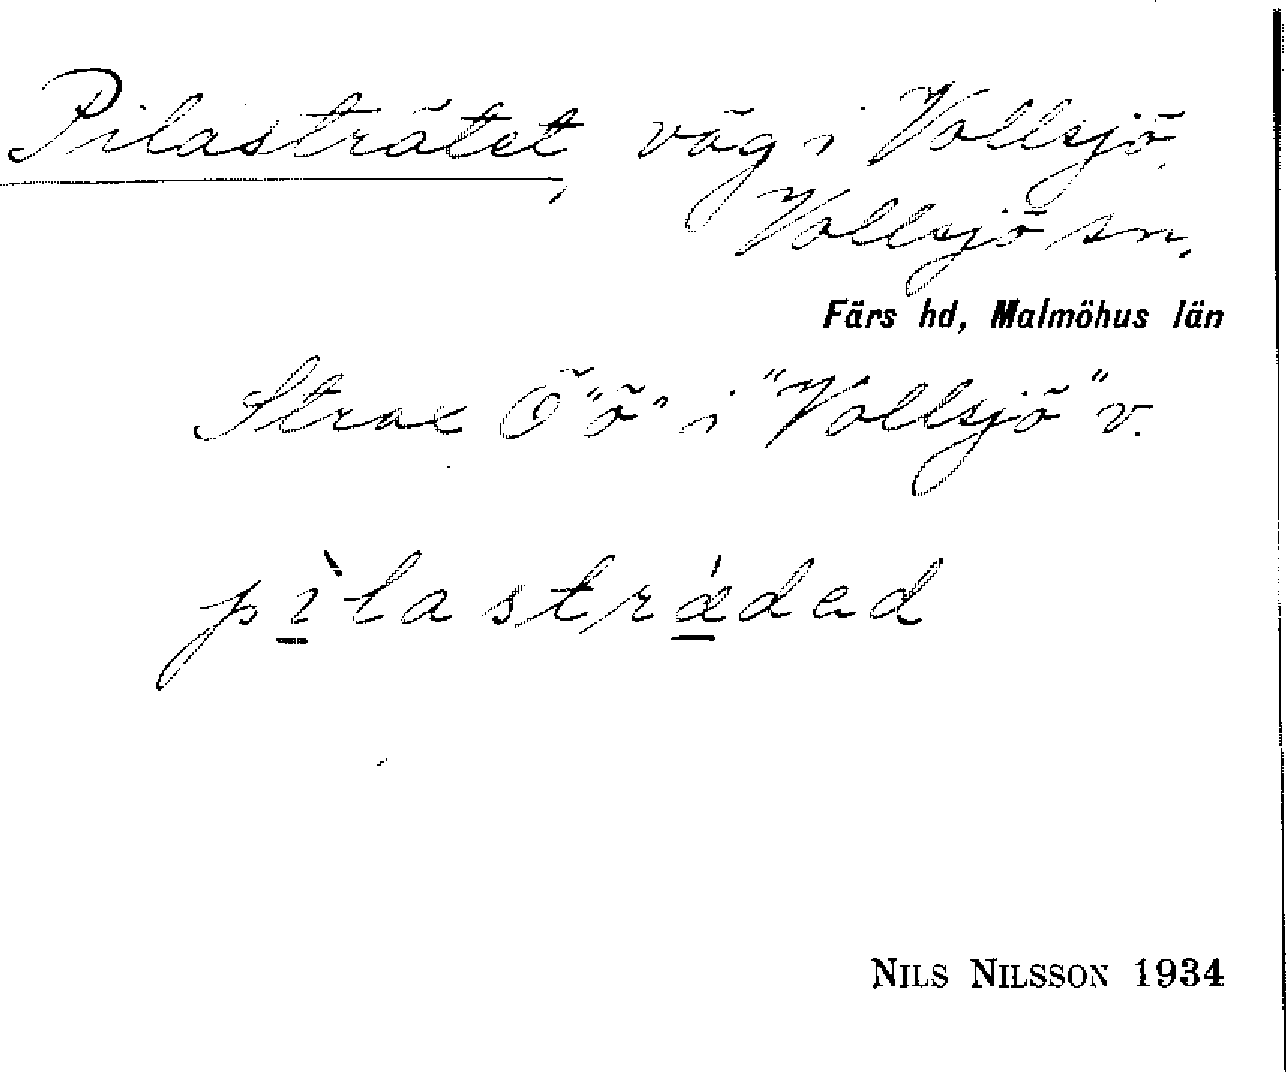 Pilasträtet, väg i Vollsjö.
Vollsjö sn.
Färs hd, Malmöhus län
Strax Ö "ö" i "Vollsjö" v.
pìlastrádad
NILS NILSSON 1934